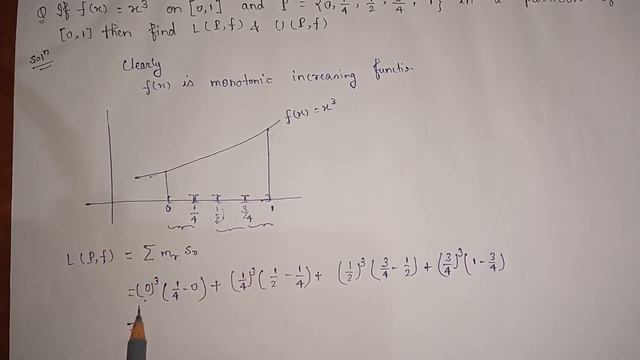 Q If f(x) = x³ on [0,1] and P = {0, 1/4, 1/2, 3/4, 1} is a partition of
[0,1] then find L(P,f) & U(P,f)
Solⁿ
Clearly
f(x) is monotonic increasing function
f(x) = x³
0 1/4 1/2 3/4 1
L(P,f) = Σ mᵣ δᵣ
= (0)³ (1/4 - 0) + (1/4)³ (1/2 - 1/4) + (1/2)³ (3/4 - 1/2) + (3/4)³ (1 - 3/4)
=